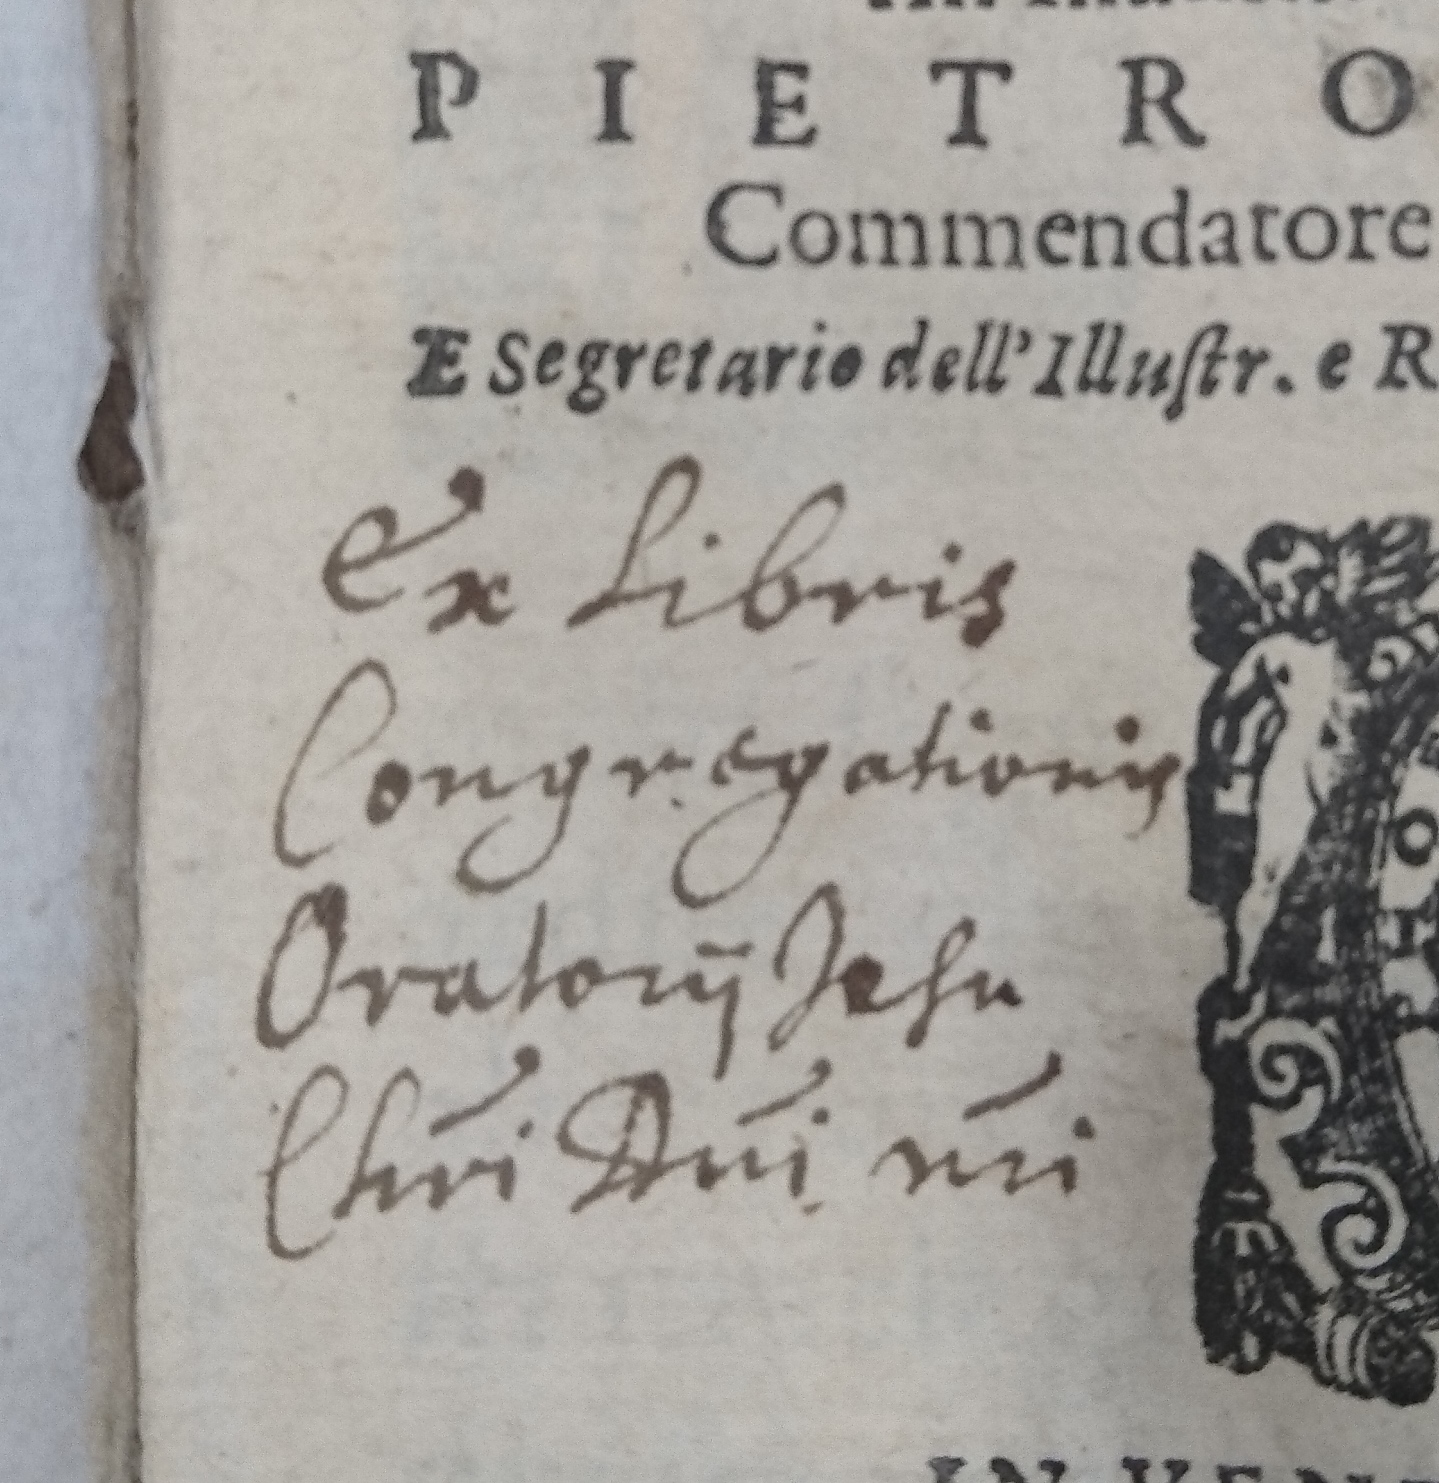 P I E T R O
Commendatore
E Segretario dell'Illuſtr. e R
Ex Libris
Congregationis
Oratorij Jesu
Chri̅i Dn̅i nr̅i
IN VENE